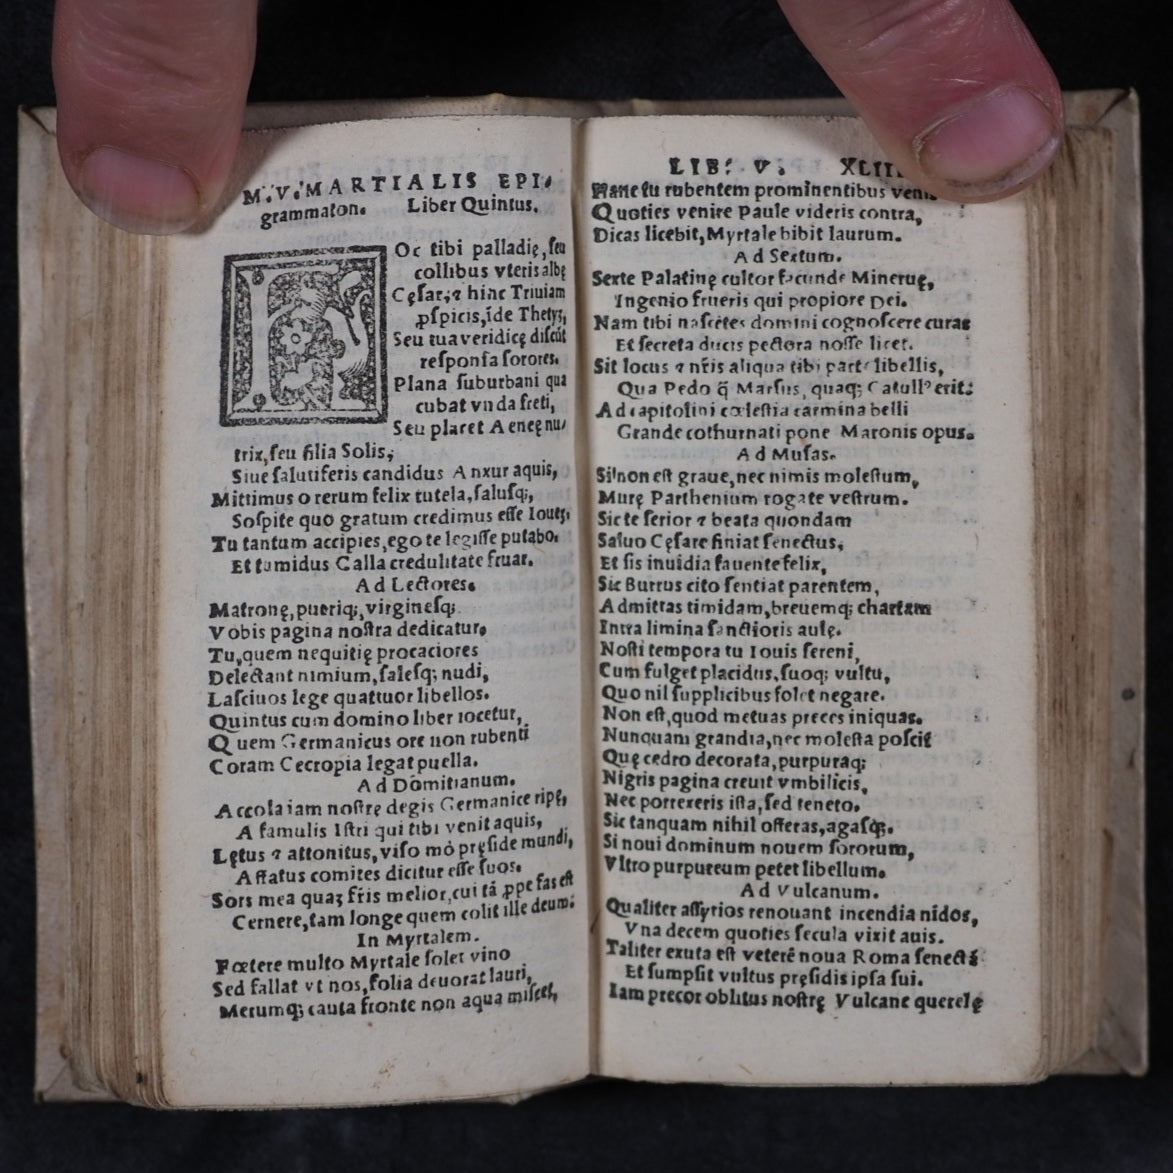 M.V.MARTIALIS EPI.
grammaton. Liber Quintus.
HOc tibi palladię,seu
collibus vteris albę
Cęsar,⁊ hinc Triuiam
ꝓspicis,īde Thetys,
Seu tua veridicę discūt
responsa sorores.
Plana suburbani qua
cubat vnda freti,
Seu placet Aeneę nu/
trix,seu filia Solis,
Siue salutiferis candidus Anxur aquis,
Mittimus o rerum felix tutela,salusq;,
Sospite quo gratum credimus esse Iouēs.
Tu tantum accipies,ego te legisse putabo.
Et tumidus Galla credulitate fruar.
Ad Lectores.
Matronę,pueriq;,virginesq;
Vobis pagina nostra dedicatur.
Tu,quem nequitię procaciores
Delectant nimium,salesq; nudi,
Lasciuos lege quattuor libellos.
Quintus cum domino liber iocetur,
Quem Germanicus ore non rubenti
Coram Cecropia legat puella.
Ad Domitianum.
Accola iam nostrę degis Germanice ripę,
A famulis Istri qui tibi venit aquis,
Lętus ⁊ attonitus,viso mō pręside mundi,
Affatus comites dicitur esse suos.
Sors mea quaꝫ fr̄is melior,cui tā ꝓpe fas est
Cernere,tam longe quem colit ille deum.
In Myrtalem.
Fœtere multo Myrtale solet vino
Sed fallat vt nos,folia deuorat lauri,
Merumq; cauta fronte non aqua miscet,
LIB. V. XLIII
Hanc tu rubentem prominentibus venis
Quoties venire Paule videris contra,
Dicas licebit,Myrtale bibit laurum.
Ad Sextum.
Serte Palatinę cultor facunde Mineruę,
Ingenio frueris qui propiore Dei.
Nam tibi nascētes domini cognoscere curas
Et secreta ducis pectora nosse licet.
Sit locus ⁊ nr̄is aliqua tibi parte libellis,
Qua Pedo q̄ Marsus, quaq; Catullꝰ erit.
Ad capitolini cœlestia carmina belli
Grande cothurnati pone Maronis opus.
Ad Musas.
Si non est graue,nec nimis molestum,
Murę Parthenium rogate vestrum.
Sic te serior ⁊ beata quondam
Saluo Cęsare finiat senectus,
Et sis inuidia fauente felix,
Sic Burrus cito sentiat parentem,
Admittas timidam,breuemq; chartam
Intra limina sanctioris aulę.
Nosti tempora tu Iouis sereni,
Cum fulget placidus,suoq; vultu,
Quo nil supplicibus solet negare.
Non est,quod metuas preces iniquas.
Nunquam grandia,nec molesta poscit
Quę cedro decorata,purpuraq;
Nigris pagina creuit vmbilicis,
Nec porrexeris ista,sed teneto.
Sic tanquam nihil offeras,agasq;.
Si noui dominum nouem sororum,
Vltro purpureum petet libellum.
Ad Vulcanum.
Qualiter assyrios renouant incendia nidos,
Vna decem quoties secula vixit auis.
Taliter exuta est veterē noua Roma senectā
Et sumpsit vultus pręsidis ipsa sui.
Iam precor oblitus nostrę Vulcane querelę